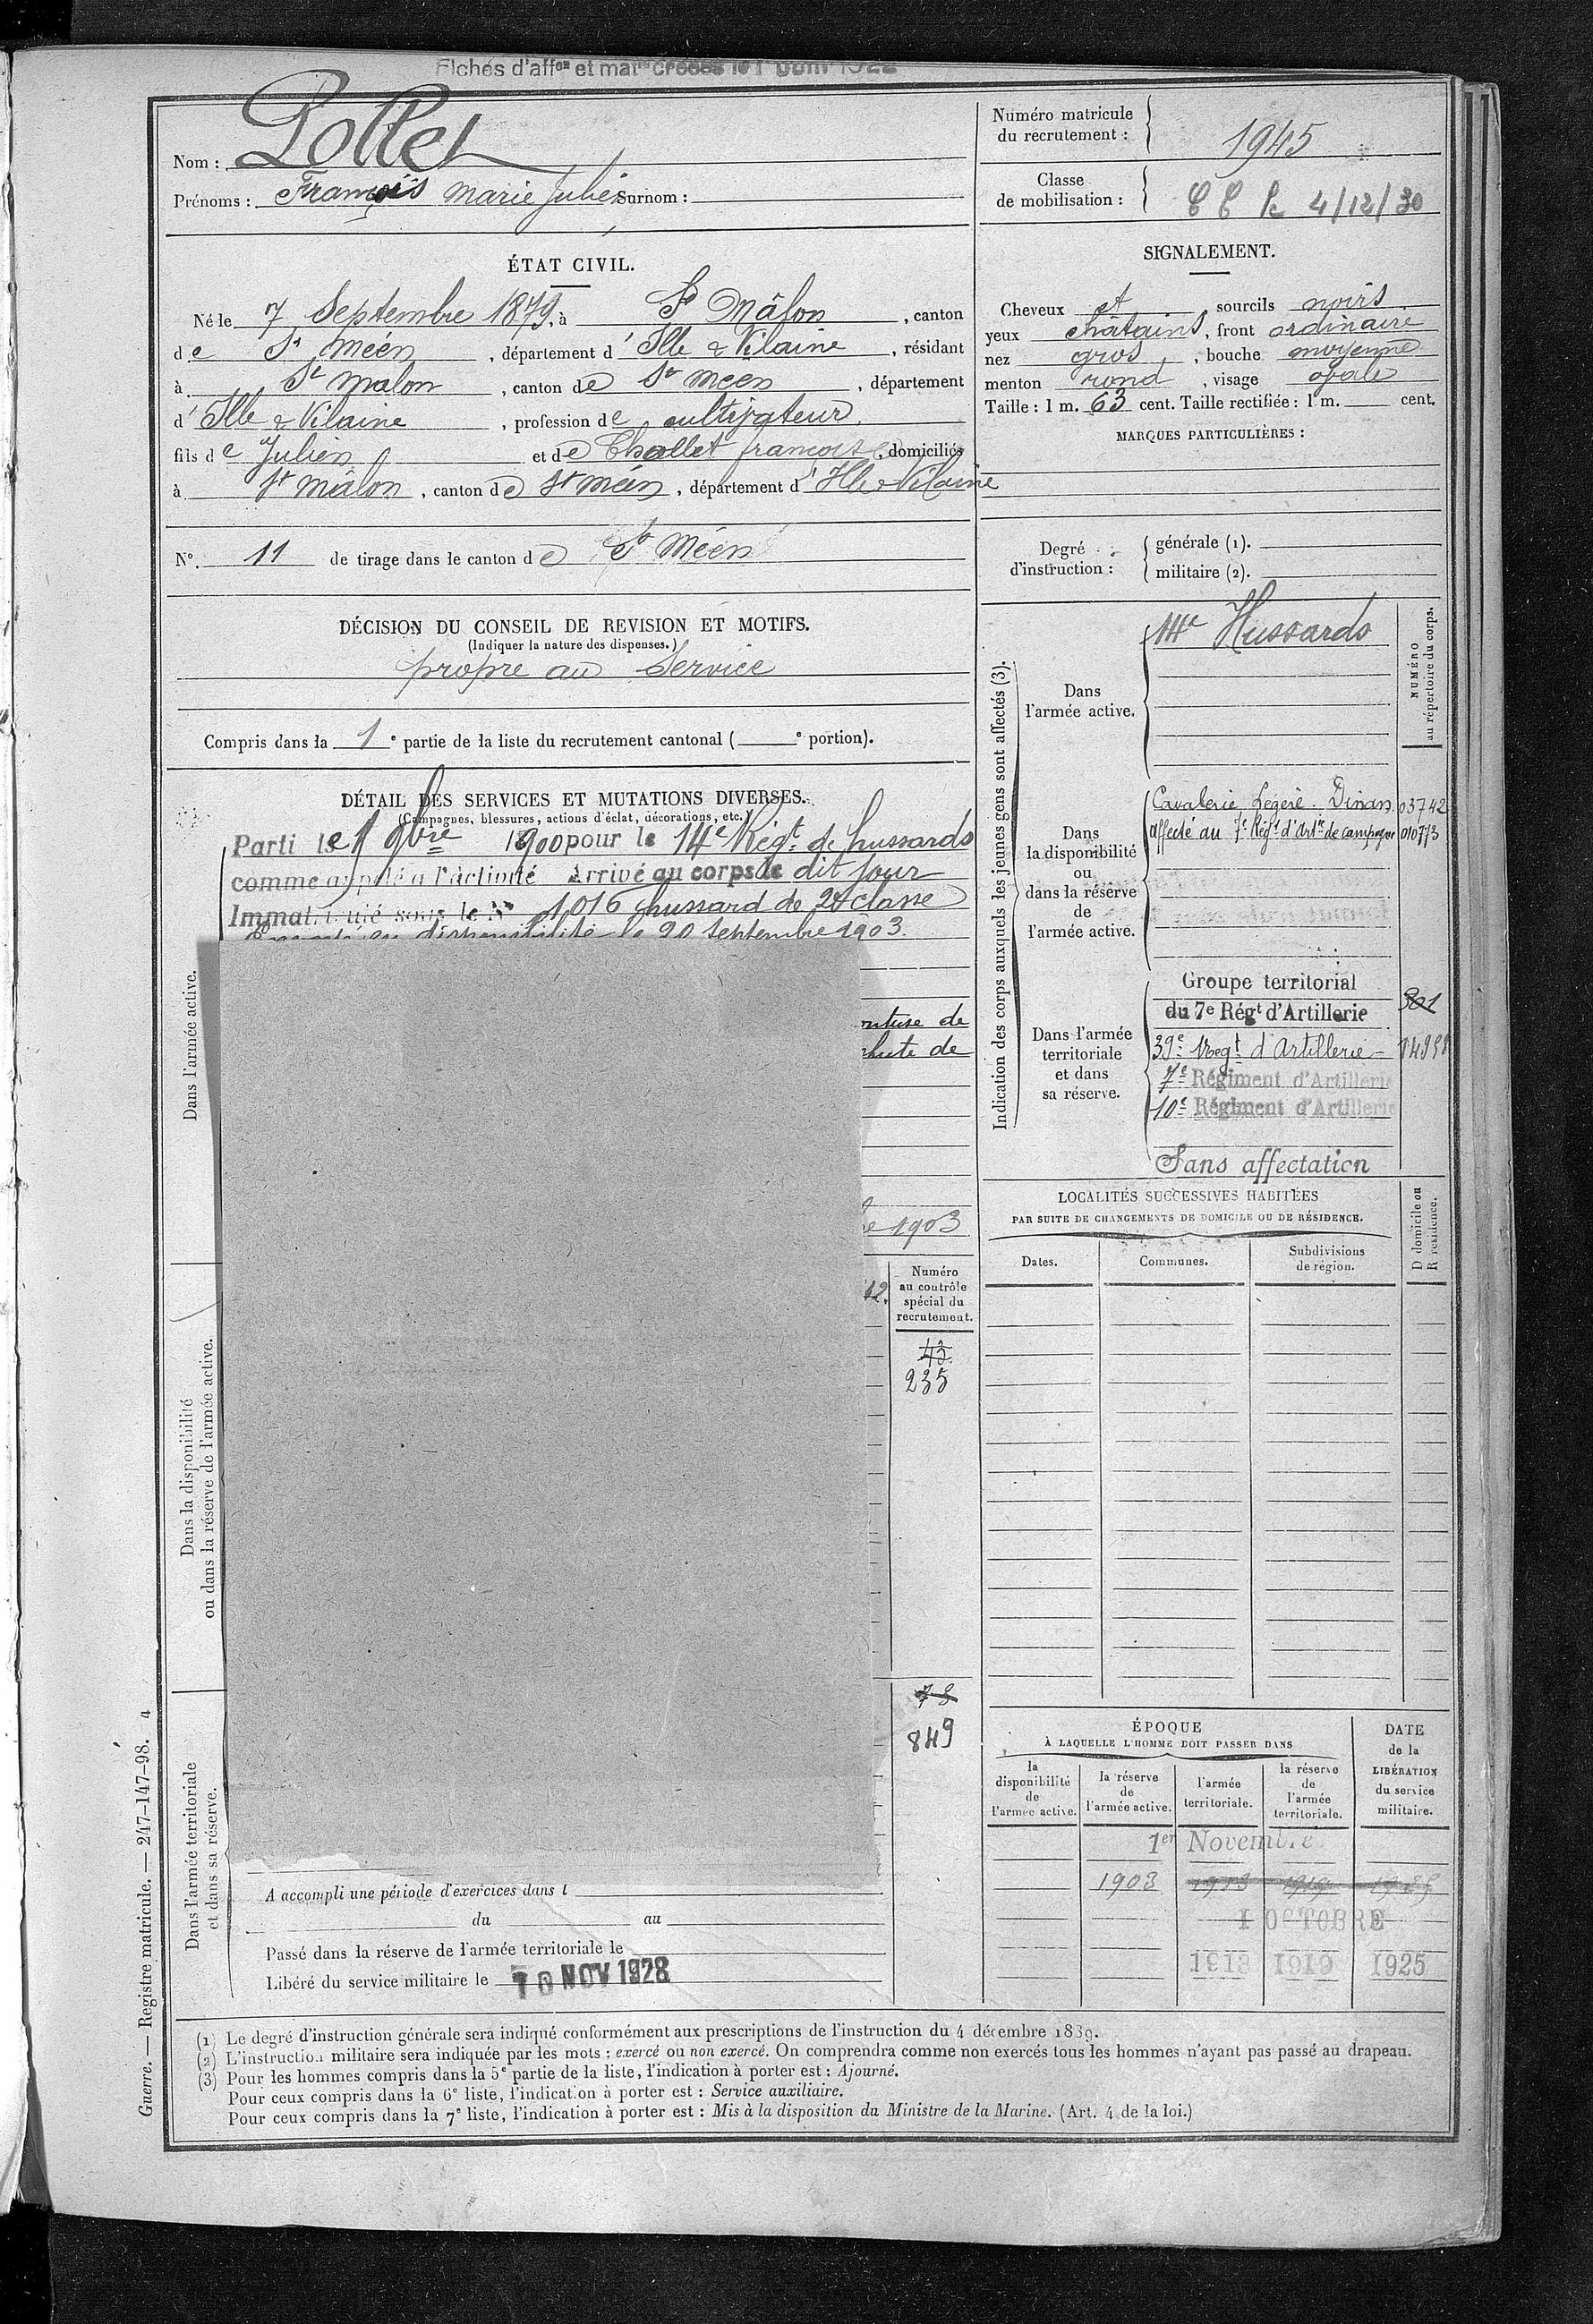 Fichés d'affon et mat
Nom : Pollet
Prénoms : François Marie Julien Surnom :
Numéro matricule
du recrutement : 1945
Classe
de mobilisation : 4/12/30
ÉTAT CIVIL.
Né le 7 Septembre 1879, à St Mâlon, canton
de St Méen, département d'Ille & Vilaine, résidant
à St Malon, canton de St Méen, département
d'Ille & Vilaine, profession de cultivateur
fils de Julien et de Chollet françoise, domiciliés
à St Mâlon, canton de St Méen, département d'Ille & Vilaine
N° 11 de tirage dans le canton de St Méen
DÉCISION DU CONSEIL DE REVISION ET MOTIFS.
(Indiquer la nature des dispenses.)
propre au Service
Compris dans la 1e partie de la liste du recrutement cantonal ( e portion).
SIGNALEMENT.
Cheveux et, sourcils noirs
yeux châtains, front ordinaire
nez gros, bouche moyenne
menton rond, visage ovale
Taille : 1 m. 63 cent. Taille rectifiée : 1 m. cent.
MARQUES PARTICULIÈRES :
Degré
d'instruction :
générale (1).
militaire (2).
DÉTAIL DES SERVICES ET MUTATIONS DIVERSES.
(Campagnes, blessures, actions d'éclat, décorations, etc.)
Parti le 1 9bre 1900 pour le 14e Régt de hussards
comme appelé à l'activité Arrivé au corps le dit jour
Immatriculé sous le N° 1016 hussard de 2e classe
en disponibilité le 20 Septembre 1903.
ontuse de
chute de
re 1903
12.
Dans l'armée active.
Dans la disponibilité
ou dans la réserve de l'armée active.
Dans l'armée territoriale
et dans sa réserve.
Numéro
au contrôle
spécial du
recrutement.
43
235
73
849
A accompli une période d'exercices dans l
du au
Passé dans la réserve de l'armée territoriale le
Libéré du service militaire le 10 NOV 1928
Indication des corps auxquels les jeunes gens sont affectés (3).
NUMÉRO
au répertoire du corps.
Dans
l'armée active.
14e Hussards
Dans
la disponibilité
ou
dans la réserve
de
l'armée active.
Cavalerie Légère. Dinan 03742
affecté au 7e Régt d'Artie de campagne 010773
Dans l'armée
territoriale
et dans
sa réserve.
Groupe territorial
du 7e Régt d'Artillerie 301
39e Regt d'Artillerie
7e Régiment d'Artillerie
10e Régiment d'Artillerie
Sans affectation
LOCALITÉS SUCCESSIVES HABITÉES
PAR SUITE DE CHANGEMENTS DE DOMICILE OU DE RÉSIDENCE.
Dates.
Communes.
Subdivisions
de région.
D domicile ou
R résidence.
ÉPOQUE
À LAQUELLE L'HOMME DOIT PASSER DANS
la
disponibilité
de
l'armée active.
la réserve
de
l'armée active.
l'armée
territoriale.
la réserve
de
l'armée
territoriale.
DATE
de la
LIBÉRATION
du service
militaire.
1er Novembre
1903 1913 1919
1 OCTOBRE
1913 1919 1925
(1) Le degré d'instruction générale sera indiqué conformément aux prescriptions de l'instruction du 4 décembre 1889.
(2) L'instruction militaire sera indiquée par les mots : exercé ou non exercé. On comprendra comme non exercés tous les hommes n'ayant pas passé au drapeau.
(3) Pour les hommes compris dans la 5e partie de la liste, l'indication à porter est : Ajourné.
Pour ceux compris dans la 6e liste, l'indication à porter est : Service auxiliaire.
Pour ceux compris dans la 7e liste, l'indication à porter est : Mis à la disposition du Ministre de la Marine. (Art. 4 de la loi.)
Guerre. — Registre matricule. — 247-147-98. 4